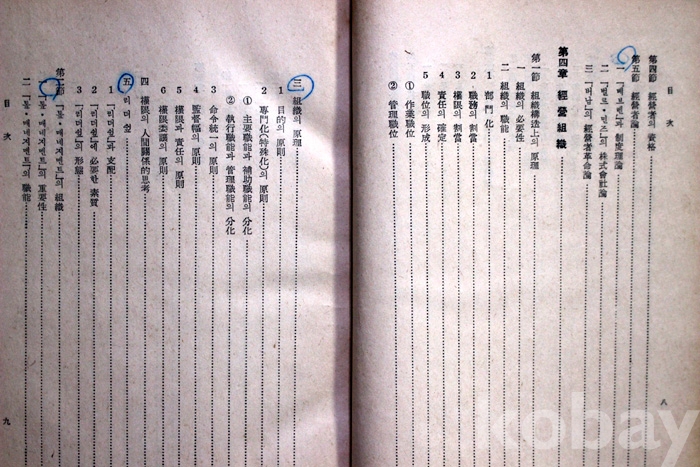 第四節 經營者의 資格
第五節 經營者論
一 「베브렌」과 制度理論
二 「벌르·민즈」의 株式會社論
三 「버남」의 經營者革命論
第四章 經營組織
第一節 組織構造上의 原理
一 組織의 必要性
二 組織의 職能
1 部門化
2 職務의 割當
3 權限의 割當
4 責任의 確定
5 職位의 形成
① 作業職位
② 管理職位
目次
八
三 組織의 原理
1 目的의 原則
2 專門化(特殊化)의 原則
① 主要職能과 補助職能의 分化
② 執行職能과 管理職能의 分化
3 命令統一의 原則
4 監督幅의 原則
5 權限과 責任의 原則
6 權限委讓의 原則
四 權限의 人間關係的思考
五 리더쉽
1 「리더쉽」과 支配
2 「리더쉽」에 必要한 素質
3 「리더쉽」의 形態
第二節 「톱·매네지멘트」의 組織
一 「톱·매네지멘트」의 重要性
二 「톱·매네지멘트」의 職能
目次
九
kobay